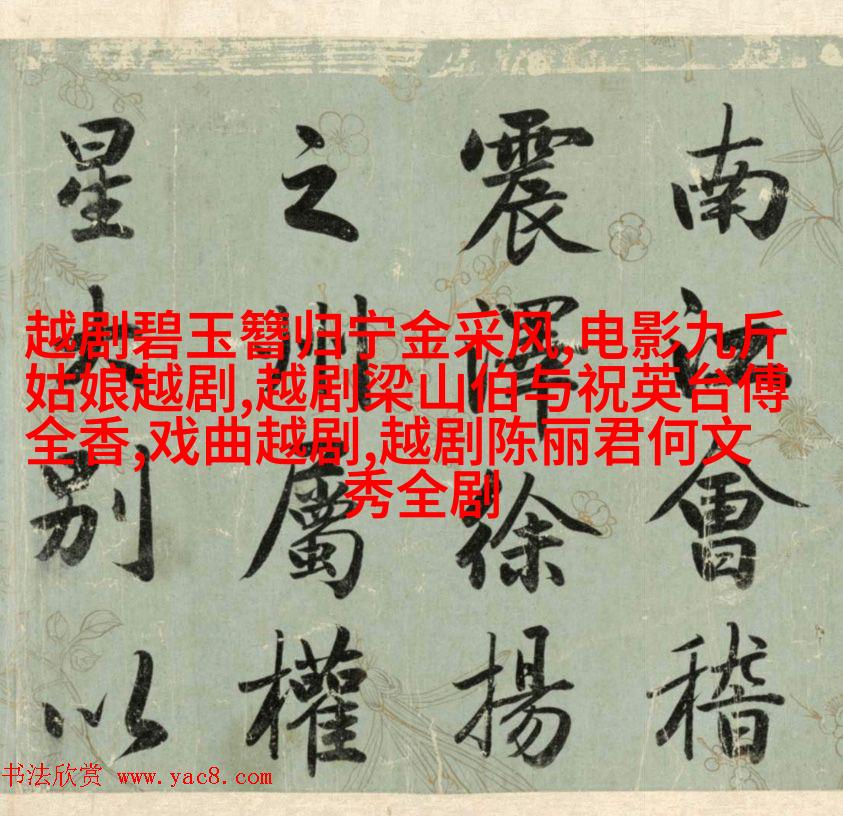 南江會稽
震澤徐揚
之州屬權
星火別以
越剧碧玉簪归宁金采风,电影九斤
姑娘越剧,越剧梁山伯与祝英台傅
全香,戏曲越剧,越剧陈丽君何文
秀全剧
书法欣赏 www.yac8.com